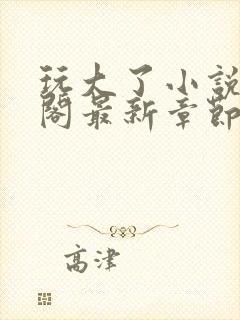 玩大了小說
閣最新章節
高津